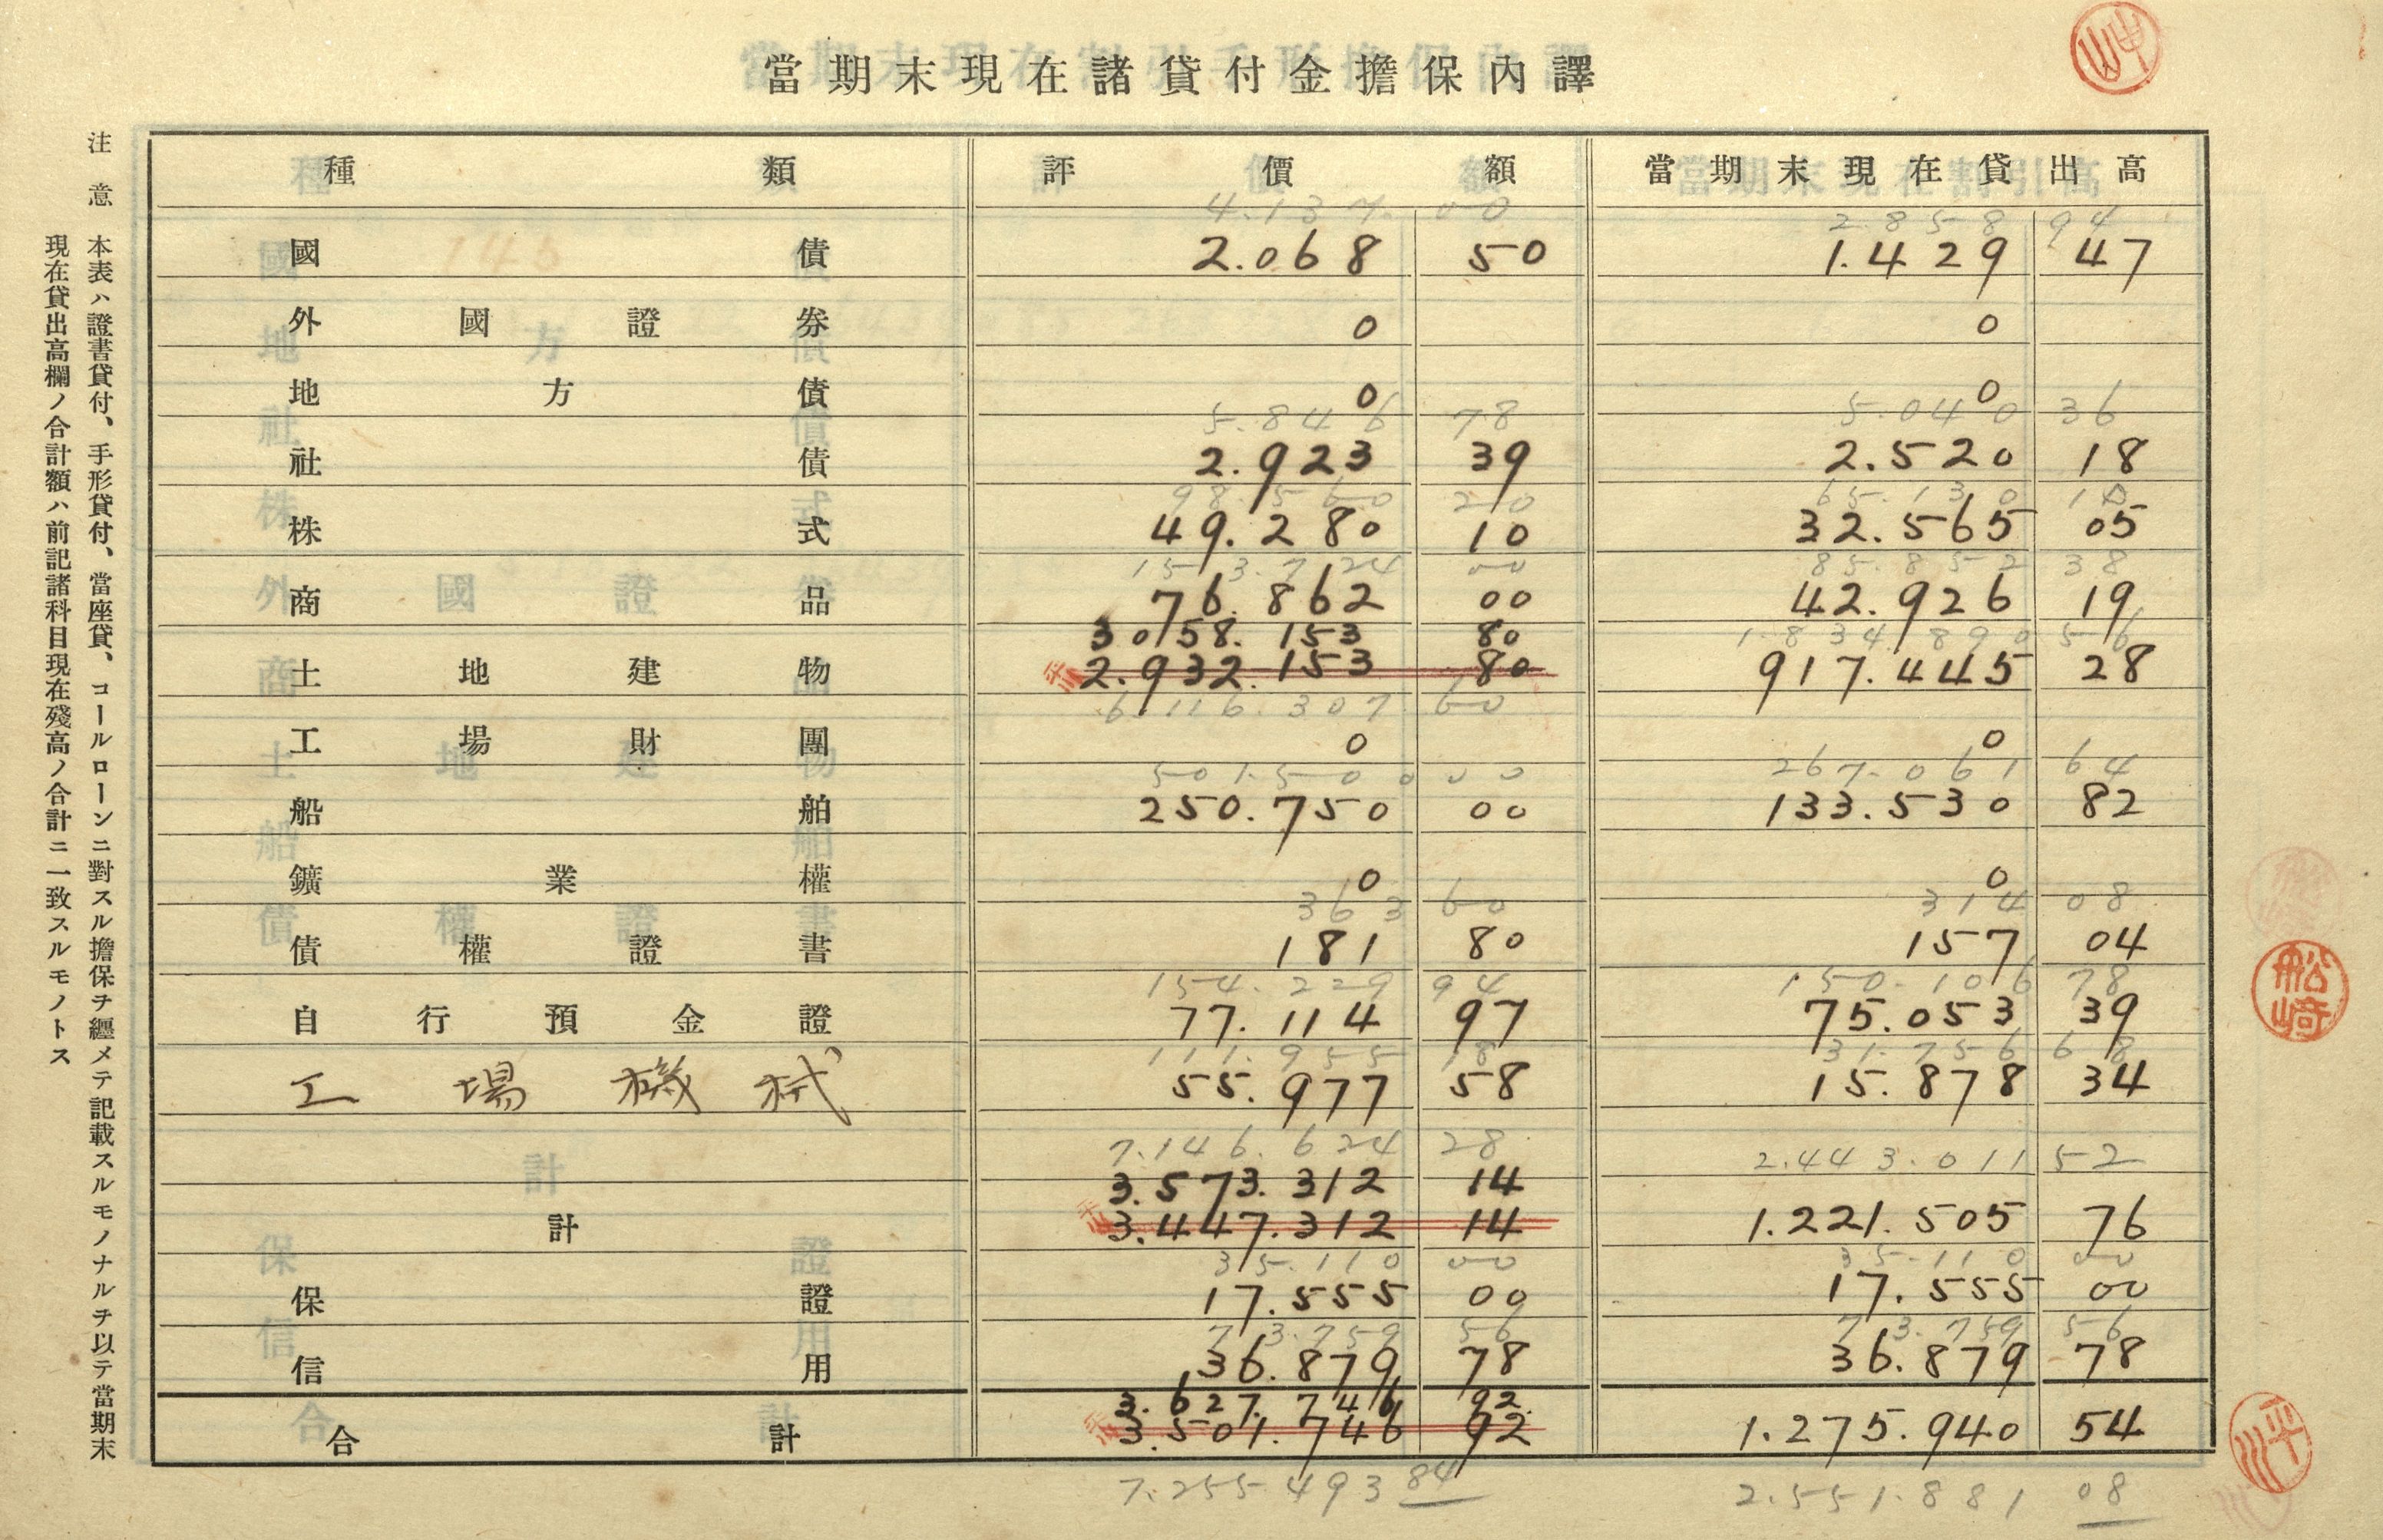 當期末現在諸貸付金擔保內譯
種類 評價額 當期末現在貸出高
4.137.00 2858 94
國債 2.068 50 1.429 47
外國證券 0 0
地方債 0 0
5.846 78 5.040 36
社債 2.923 39 2.520 18
98.560 20 65.130 10
株式 49.280 10 32.565 05
153.724 00 85.852 38
商品 76.862 00 42.926 19
3058.153 80 1.834.890 56
土地建物 2.932.153 80 917.445 28
6.116.307 60
工場財團 0 0
501.500 00 267.061 64
船舶 250.750 00 133.530 82
鑛業權 0 0
363 60 314 08
債權證書 181 80 157 04
154.229 94 150.106 78
自行預金證 77.114 97 75.053 39
111.955 18 31.756 68
工場機械 55.977 58 15.878 34
7.146.624 28 2.443.011 52
3.573.312 14
計 3.447.312 14 1.221.505 76
35.110 00 35.110 00
保證 17.555 00 17.555 00
73.759 56 73.759 56
信用 36.879 78 36.879 78
3.627.746 92
合計 3.501.746 92 1.275.940 54
7.255.493 84 2.551.881 08
注意 本表ハ證書貸付、手形貸付、當座貸、コールローンニ對スル擔保ヲ纒メテ記載スルモノナルヲ以テ當期末
現在貸出高欄ノ合計額ハ前記諸科目現在殘高ノ合計ニ一致スルモノトス
船崎
平